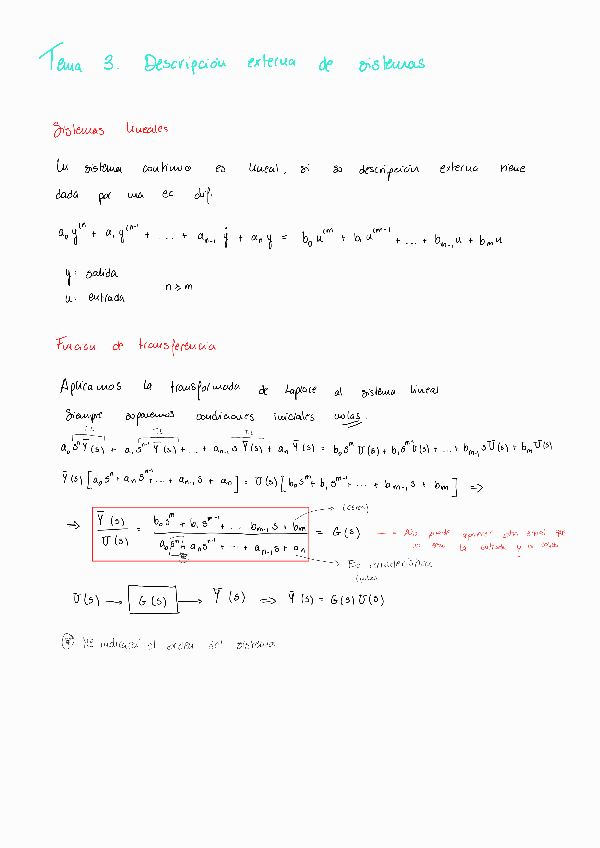 Tema 3. Descripción externa de sistemas
Sistemas lineales
Un sistema continuo es lineal, si su descripción externa viene
dada por una ec dif:
a₀ y⁽ⁿ + a₁ y⁽ⁿ⁻¹ + ... + aₙ₋₁ ẏ + aₙ y = b₀ u⁽ᵐ + b₁ u⁽ᵐ⁻¹ + ... + bₘ₋₁ u + bₘ u
y: salida
u: entrada n ≥ m
Función de transferencia
Aplicamos la transformada de Laplace al sistema lineal
Siempre suponemos condiciones iniciales nulas.
a₀ sⁿ Ȳ(s) + a₁ sⁿ⁻¹ Ȳ(s) + ... + aₙ₋₁ s Ȳ(s) + aₙ Ȳ(s) = b₀ sᵐ Ū(s) + b₁ sᵐ⁻¹ Ū(s) + ... + bₘ₋₁ s Ū(s) + bₘ Ū(s)
Ȳ(s) [a₀ sⁿ + aₙ sⁿ⁻¹ + ... + aₙ₋₁ s + aₙ] = Ū(s) [b₀ sᵐ + b₁ sᵐ⁻¹ + ... + bₘ₋₁ s + bₘ] =>
(ceros)
=> Ȳ(s) / Ū(s) = (b₀ sᵐ + b₁ sᵐ⁻¹ + ... bₘ₋₁ s + bₘ) / (a₀ sⁿ + aₙ sⁿ⁻¹ + ... + aₙ₋₁ s + aₙ) = G(s) → No puede aparecer otra señal que
no sean la entrada y la salida
Ec característica
(polos)
Ū(s) → G(s) → Ȳ(s) => Ȳ(s) = G(s) Ū(s)
⊛ Me indicará el orden del sistema